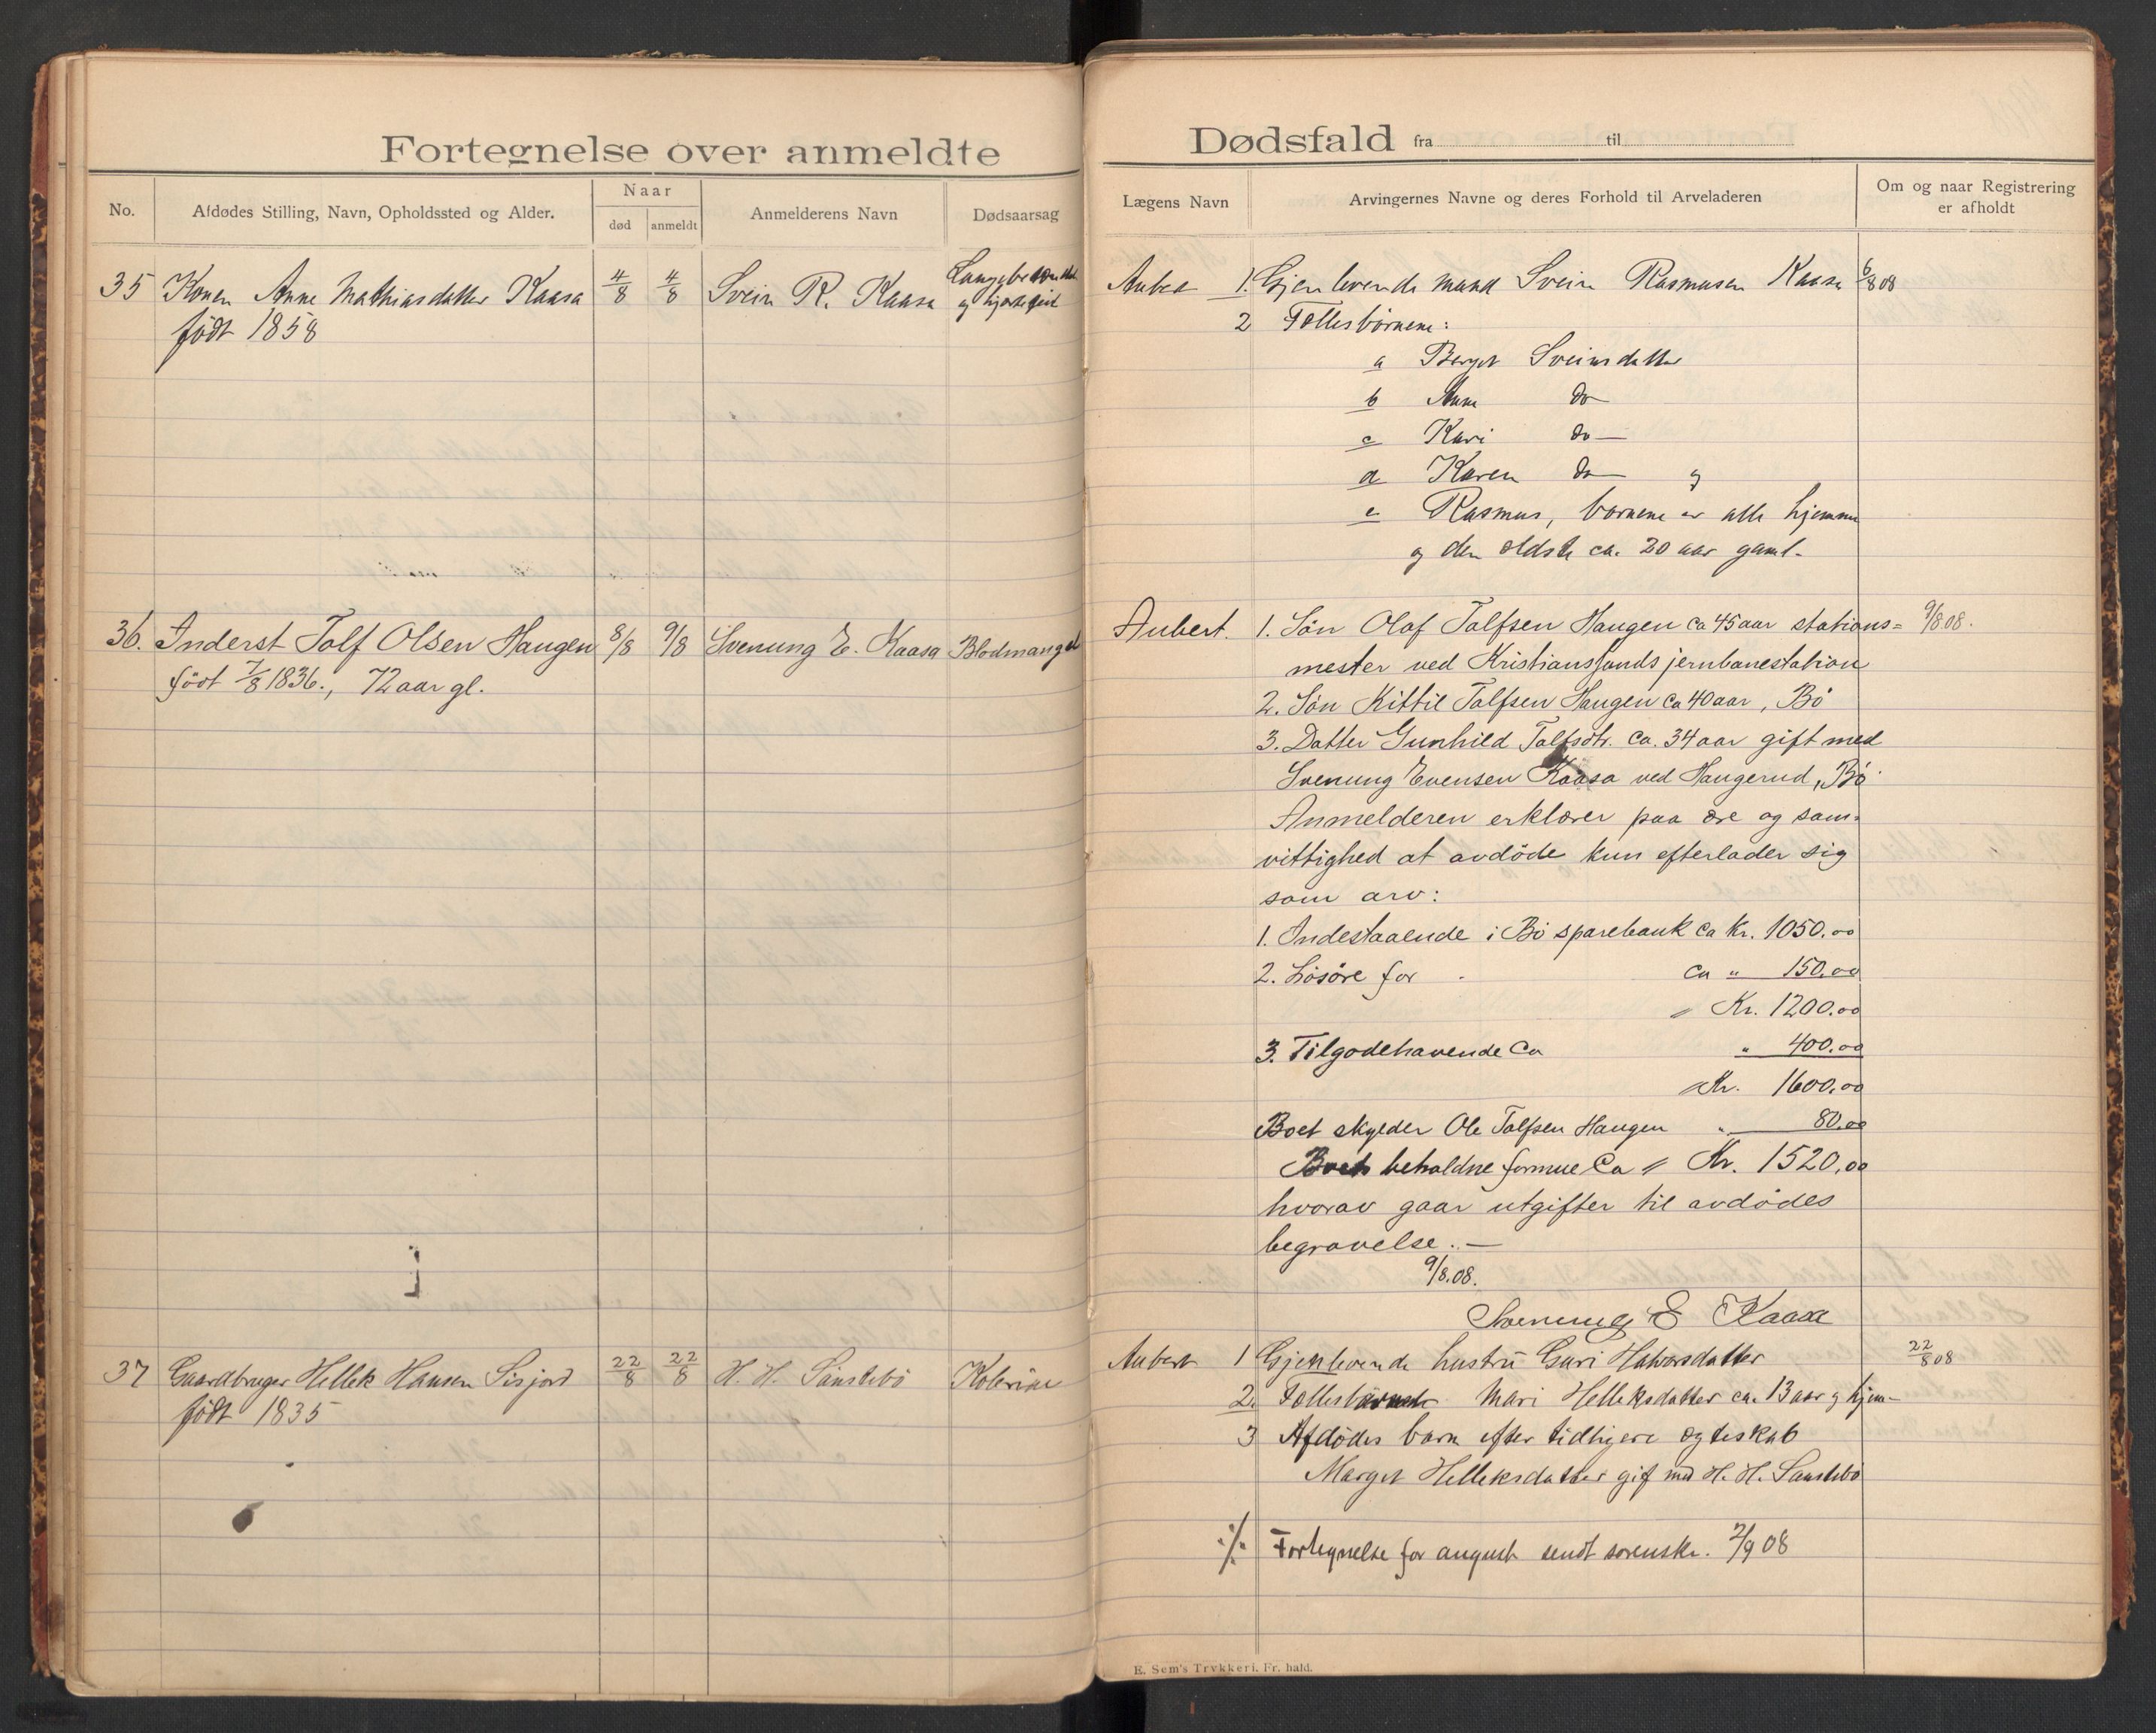 Fortegnelse over anmeldte
Dødsfald fra til
No.
Afdødes Stilling, Navn, Opholdssted og Alder.
Naar
død
anmeldt
Anmelderens Navn
Dødsaarsag
Lægens Navn
Arvingernes Navne og deres Forhold til Arveladeren
Om og naar Registrering
er afholdt
35 Konen Anne Mathiasdatter Kaasa 4/8 4/8 Svein R. Kaasa
født 1858
og hjertefeil
Aubert 1. Gjenlevende mand Svein Rasmusen Kaasa 6/8 08
2 Fællesbørnene:
a Berget Sveinsdatter
b Anne do
c Kari do
d Karen do og
e Rasmus, børnene er alle hjemme
og den ældste ca. 20 aar gaml.
36. Inderst Tolf Olsen Haugen 8/8 9/8 Svenung E. Kaasa Blodmangel
født 7/8 1836., 72 aar gl.
Aubert. 1. Søn Olaf Tolfsen Haugen ca 45 aar stations= 9/8 08.
mester ved Kristianssands jernbanestation
2. Søn Kittil Tolfsen Haugen ca 40 aar, Bø
3. Datter Gunhild Tolfsdtr. ca. 34 aar gift med
Svenung Evensen Kaasa ved Haugerud, Bø.
Anmelderen erklærer paa ære og sam=
vittighed at avdøde kun efterlader sig
som arv:
1. Indestaaende i Bø sparebank ca Kr. 1050.00
2. Løsøre for ca " 150.00
Kr. 1200.00
3. Tilgodehavende Ca " 400.00
Kr. 1600.00
Boet skylder Ole Tolfsen Haugen " 80.00
Boets beholdne formue Ca Kr. 1520,00
hvorav gaar utgifter til avdødes
begravelse. —
9/8.08.
Svenung E Kaasa
37 Gaardbruger Hellek Hansen Sisjord 22/8 22/8 H. H. Sanstebø Kolerine
født 1835
Aubert 1 Gjenlevende hustru Guri Halvorsdatter 22/8 08
2. Mari Helleksdatter ca. 13 aar og hjem-
3 Afdødes barn efter tidligere ægteskab
Marget Helleksdatter gif med H. H. Sanstebø
·/· Fortegnelse for august sendt sorenskr. 2/9 08
E. Sem's Trykkeri. Fr. hald.